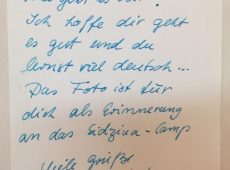 Ich hoffe dir geht
es gut und du
lernst viel deutsch...
Das Foto ist für
dich als Erinnerung
an das Sidzina-Camp
Viele Grüße